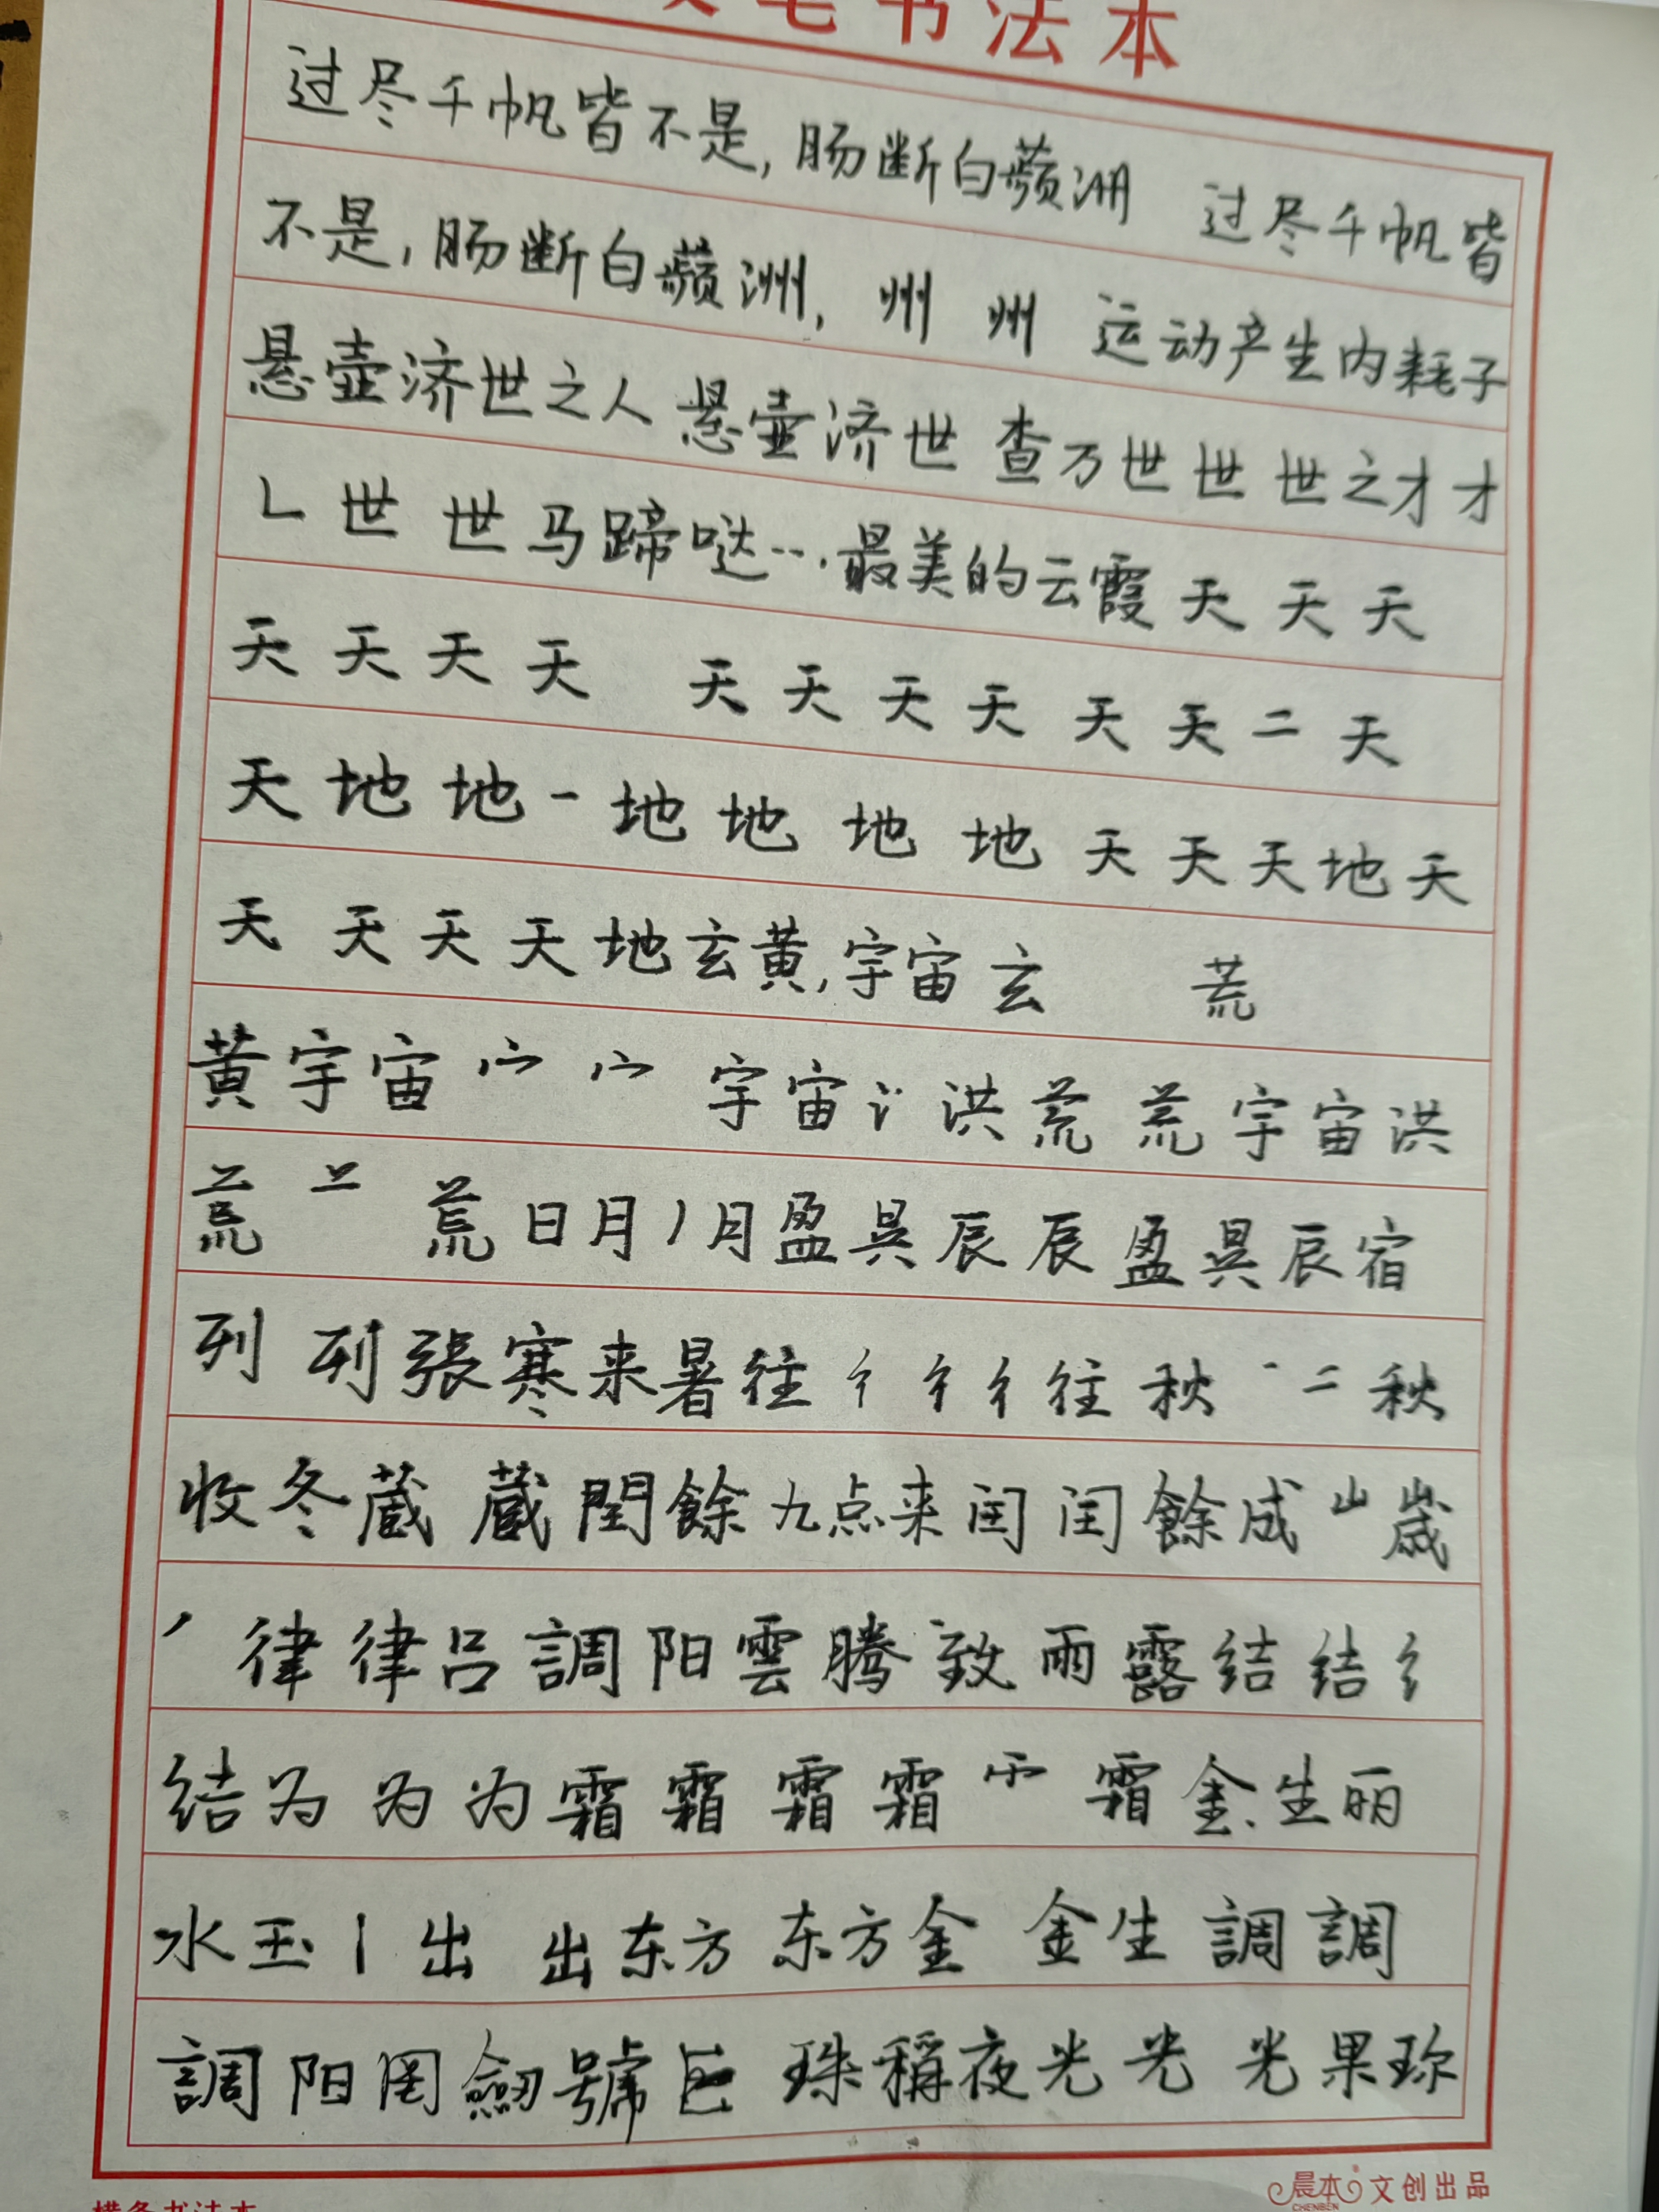 笔书法本
过尽千帆皆不是,肠断白蘋洲 过尽千帆皆
不是,肠断白蘋洲,州 州 运动产生内耗子
悬壶济世之人 悬壶济世 查万世世世之才才
乚世世马蹄哒…最美的云霞天天天
天天天天 天天天天天天二天
天地地一地地地地天天天地天
天天天天地玄黄,宇宙玄 荒
黄宇宙宀宀宇宙氵洪荒荒宇宙洪
荒 荒日月丿月盈昃辰辰盈昃辰宿
列列張寒来暑往彳彳彳往秋一二秋
收冬蔵蔵閏餘九点来闰闰餘成山歲
丿律律吕調阳雲腾致雨露结结纟
结为为为霜霜霜霜 霜金生丽
水玉丨出出东方东方金金生調調
調阳囯劔號巨珠稱夜光光光果珍
晨本 文创出品
CHENBEN
横条书法本